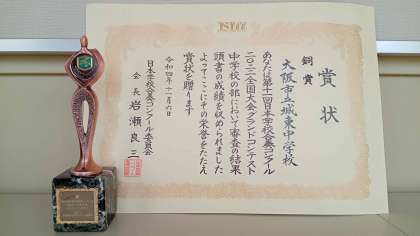 賞状
銅賞
大阪市立城東中学校
あなたは第十一回日本学校合奏コンクール
二〇二二全国大会グランドコンテスト
中学校の部において審査の結果
頭書の成績を収められました
よってここにその栄誉をたたえ
賞状を贈ります
令和四年十一月六日
日本学校合奏コンクール委員会
会長 岩瀬良三